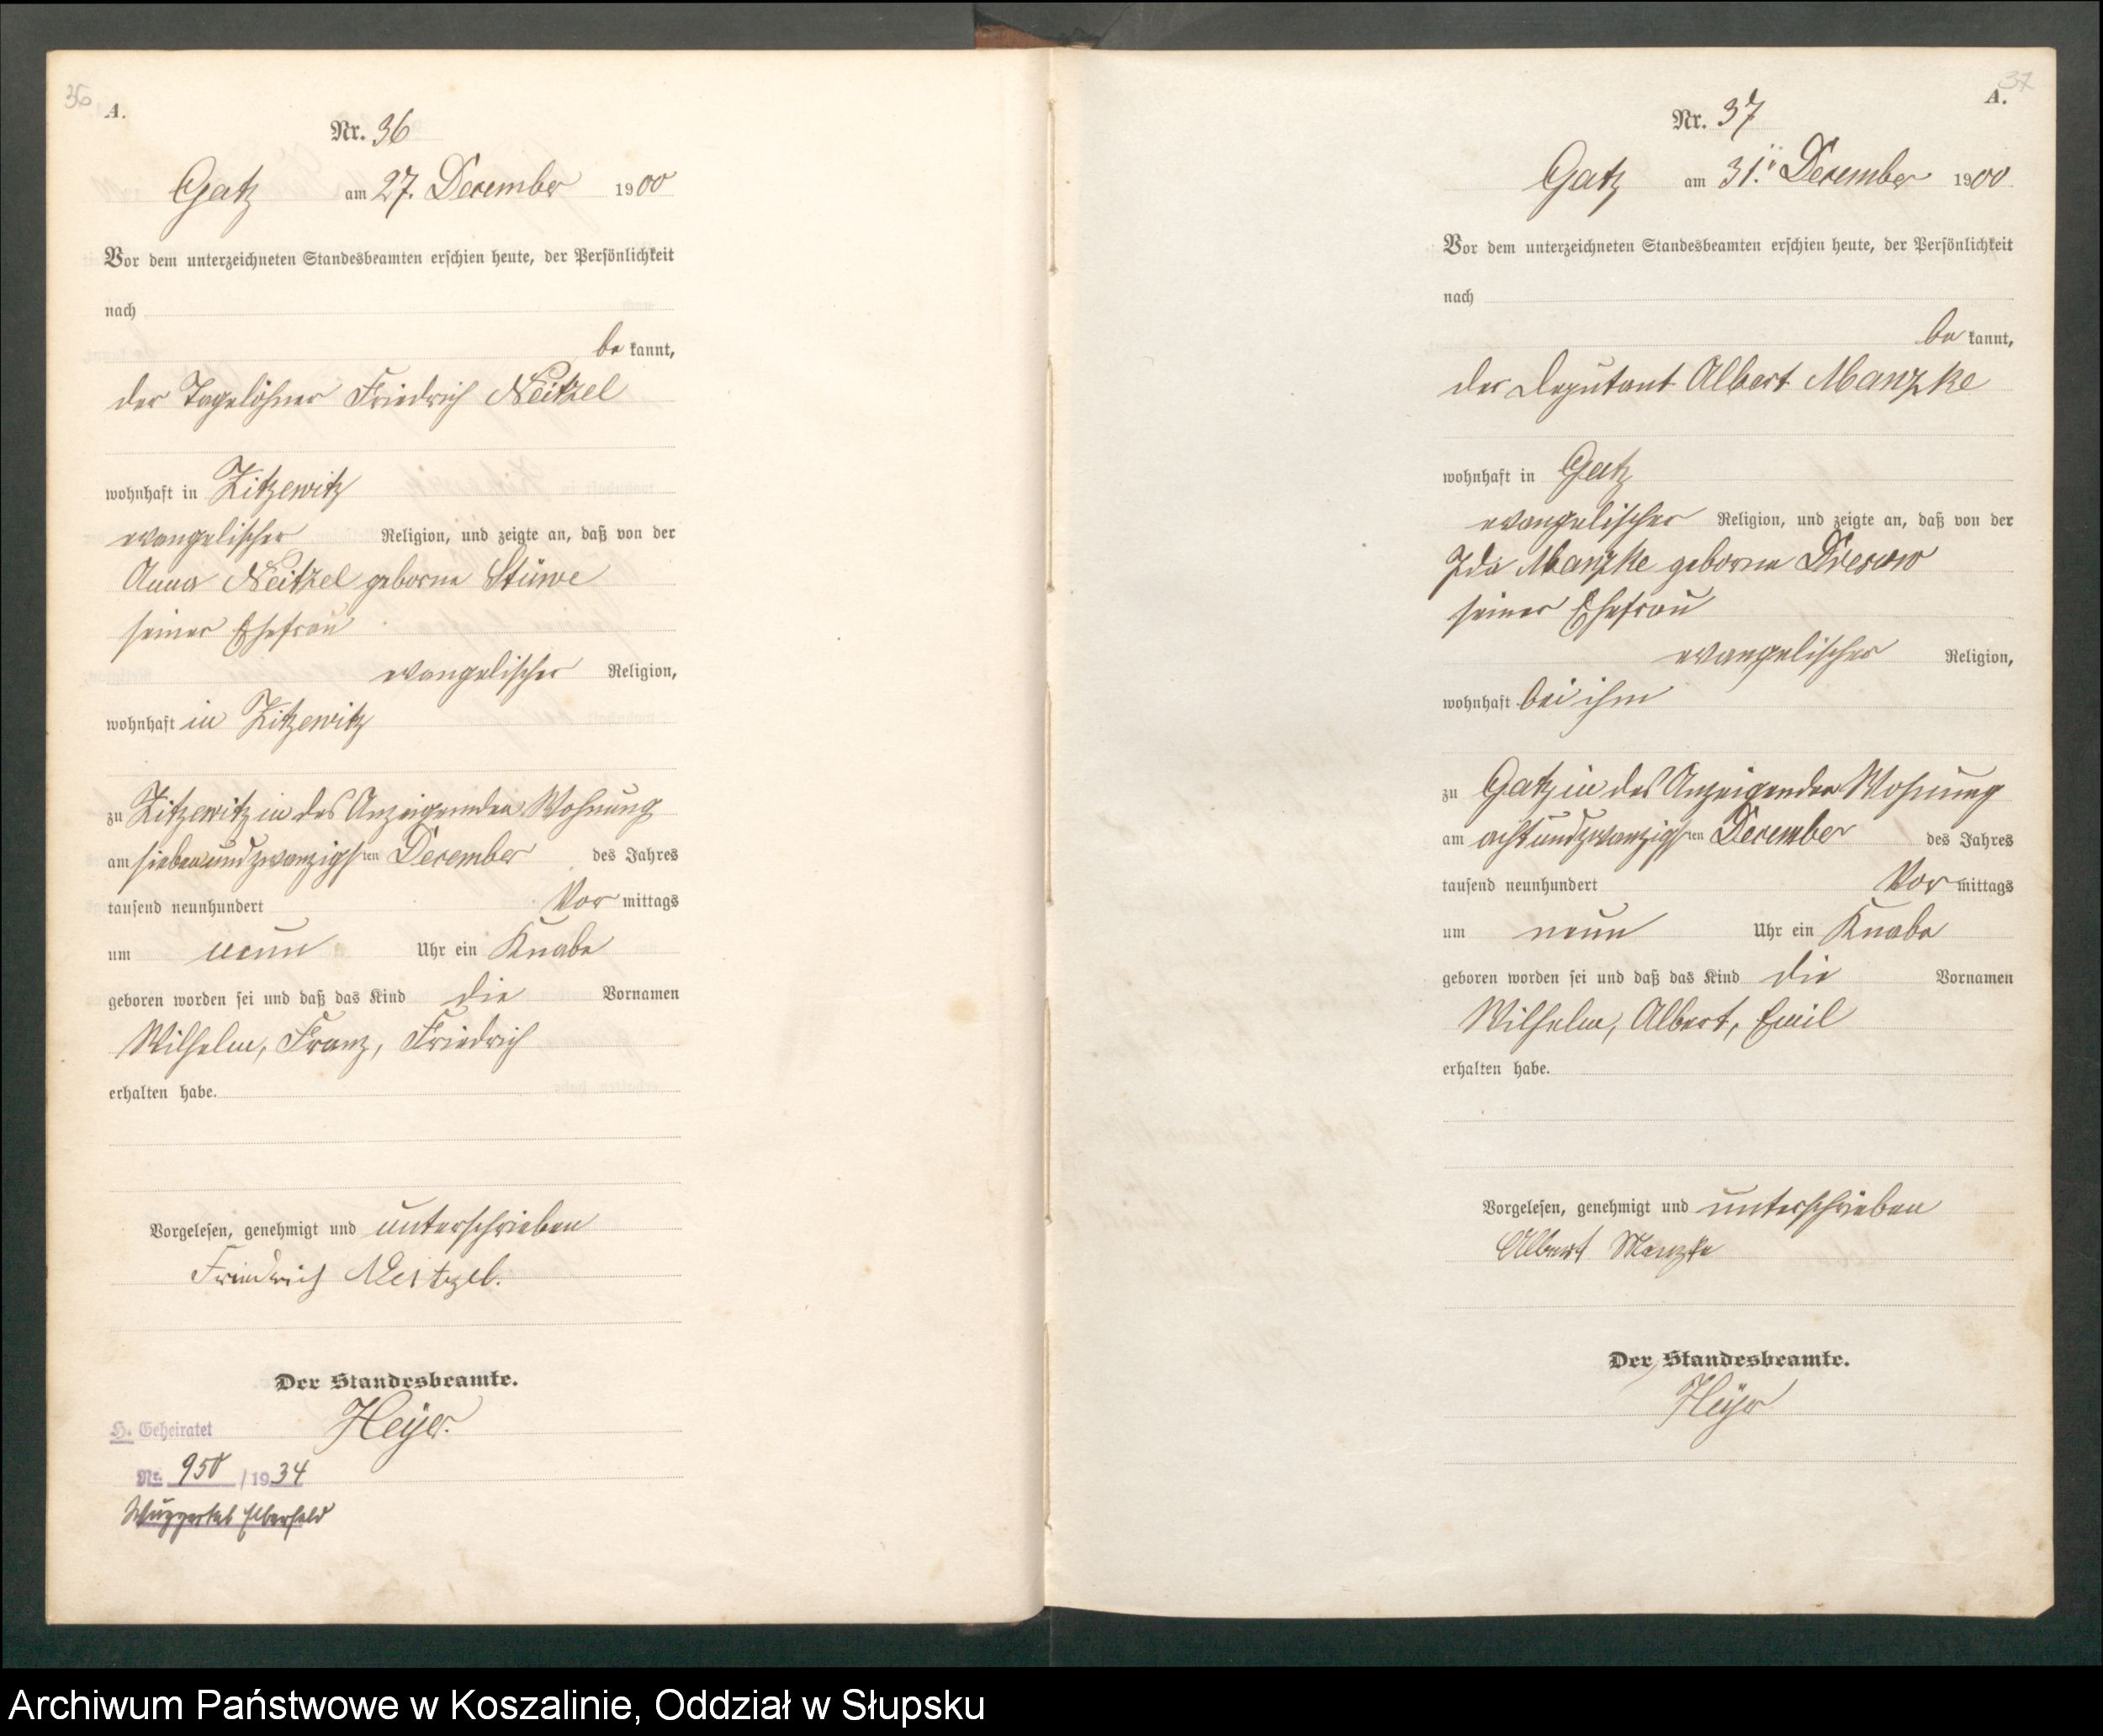 36
A.
Nr. 36
Gatz am 27. December 1900
Vor dem unterzeichneten Standesbeamten erschien heute, der Persönlichkeit
nach
be kannt,
der Tagelöhner Friedrich Neitzel
wohnhaft in Zitzewitz
evangelischer Religion, und zeigte an, daß von der
Anna Neitzel geborne Stüwe
seiner Ehefrau
evangelischer Religion,
wohnhaft in Zitzewitz
zu Zitzewitz in des Anzeigenden Wohnung
am siebenundzwanzigsten December des Jahres
tausend neunhundert Vor mittags
um neun Uhr ein Knabe
geboren worden sei und daß das Kind die Vornamen
Wilhelm, Franz, Friedrich
erhalten habe.
Vorgelesen, genehmigt und unterschrieben
Friedrich Neitzel.
Der Standesbeamte.
Heyer.
H. Geheiratet
Nr. 950 / 1934
Wuppertal Elberfeld
37
A.
Nr. 37
Gatz am 31. December 1900
Vor dem unterzeichneten Standesbeamten erschien heute, der Persönlichkeit
nach
be kannt,
der Deputant Albert Manzke
wohnhaft in Gatz
evangelischer Religion, und zeigte an, daß von der
Ida Manzke geborne Dresow
seiner Ehefrau
evangelischer Religion,
wohnhaft bei ihm
zu Gatz in des Anzeigenden Wohnung
am achtundzwanzigsten December des Jahres
tausend neunhundert Vor mittags
um neun Uhr ein Knabe
geboren worden sei und daß das Kind die Vornamen
Wilhelm, Albert, Emil
erhalten habe.
Vorgelesen, genehmigt und unterschrieben
Albert Manzke
Der Standesbeamte.
Heyer
Archiwum Państwowe w Koszalinie, Oddział w Słupsku